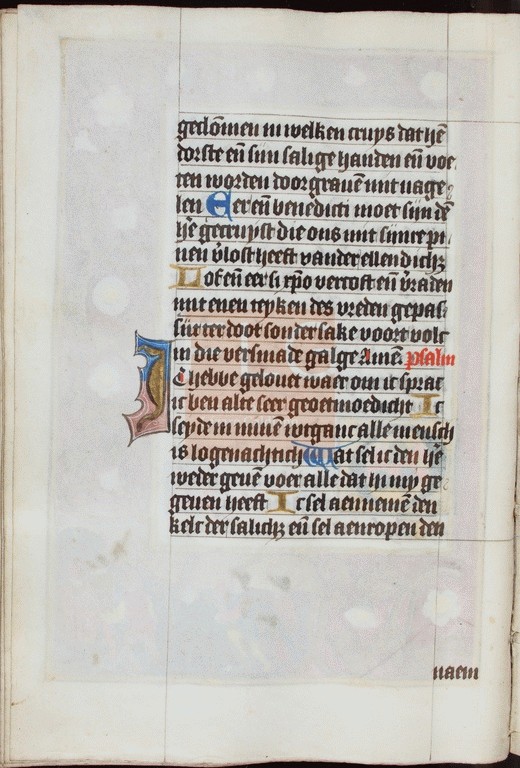 geclōmen in welken cruys dat hē
dorste eñ sijn salige handen eñ voe
ten worden doorgrauē mit nage
len Eer eñ benedicti moet sijn dē
hē gecruyst die ons mit sijnre pi
nen v̄lost heeft vander ellendichz
Lof eñ eer si xp̄o vercoft eñ v̄raden
mit enen teyken des vreden gepas
sijt ter doot sonder sake voort volc
in die versmade galge Amē psalm
Ic hebbe gelouet waer om ic sprac
ic ben alte seer geoetmoedicht Ic
seyde in minē wtganc alle mensch
is logenachtich Wat sel ic den hē
weder geuē voer alle dat hi my ge
geuen heeft Ic sel aennemē den
kelc der salichz eñ sel aenropen den
naem